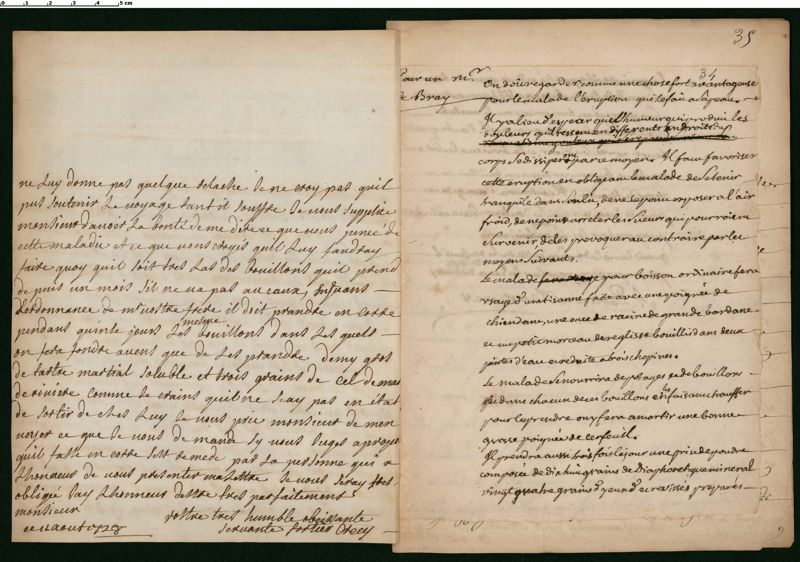 ne Luy donne pas quelque relache Je ne croy pas quil
puis soutenir Le voyage tant il souffre Je vous supplie
monsieur davoir La bonté de me dire ce que vous pencé de
cette maladie et ce que vous croyés quil Luy faudray
faire quoy quil soit tres Las des bouillons quil prend
de puis un mois sil ne va pas au eaux, suivans
Lordonnance de mr vostre frere il doit prandre en corre
pendans quinze jours Les mesme bouillons dans Les quels
on fera fondre avens que de Les prandre demy gros
de tartre martial soluble et trois grains de Cel de mars
de riviere comme Je crains quil ne Soy pas en etat
de sortir de ches Luy Je vous prie monsieur de men
voyer ce que Je vous de mande sy vous Juges a propos
quil fasse en corre Cest remede par La personne qui a
Lhonneur de vous presenter ma Lettre Je vous serey tres
obligée Jay Lhonneur dettre tres parfaitement
monsieur
vostre tres humble obeissante
ce 11 aout 1728 servante
35
34
Pour un Mr
de Bray
On doit regarder comme une chose fort avantageuse
pour le malade l'eruption qui se fait a la peau.
Il y a lieu d'esperer que l'humeur qui produit les
douleurs qu'il ressent en differents endroits du
corps se dissipera par ce moyen. Il faut favoriser
cette eruption en obligeant le malade de se tenir
tranquile dans son lit, de ne se point exposer a l'air
froid, de ne point arreter les sueurs qui pourroient
survenir, de les provoquer au contraire par les
moyens suivants.
Le malade pour boisson ordinaire fera
usage d'une tisanne faite avec une poignée de
chiendent, une once de racine de grande bardane
et un petit morceau de reglisse bouillis dans deux
pintes d'eau et reduite a trois chopines.
Le malade se nourrira de potages et de bouillons
dans chacun de ces bouillons en les faisant chauffer
pour les prendre on y fera amortir une bonne
grosse poignée de cerfeuil.
Il prendra aussi trois fois le jour une prise de poudre
composée de dix huit grains de Diaphoretique mineral
vingt quatre grains d'yeux d'ecrevisses preparés